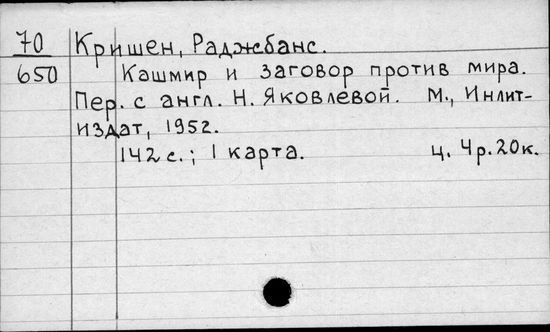 70 Кришен, Раджбанс.
650 Кашмир и заговор против мира.
Пер. с англ. Н. Яковлевой. М., Инлит-
издат, 1952.
142 с.; 1 карта. ц. 4р. 20к.